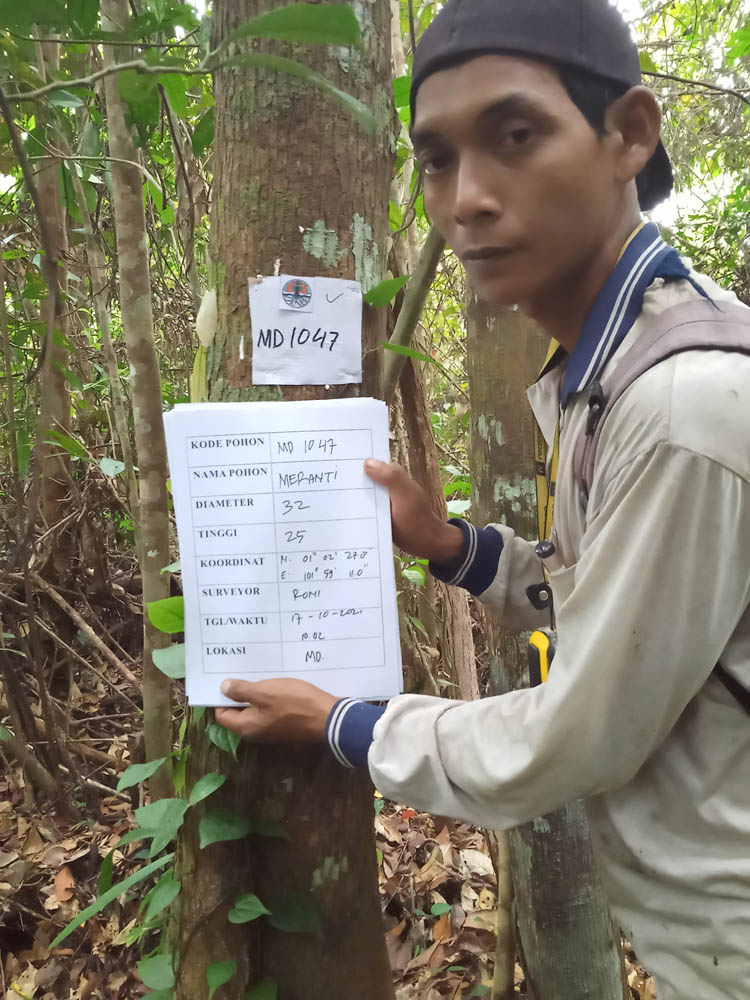 MD 1047
KODE POHON MD 1047
NAMA POHON MERANTI
DIAMETER 32
TINGGI 25
KOORDINAT N. 01° 02' 27.0"
E. 101° 59' 11.0"
SURVEYOR ROMI
TGL/WAKTU 17-10-2021
10.02
LOKASI MD.